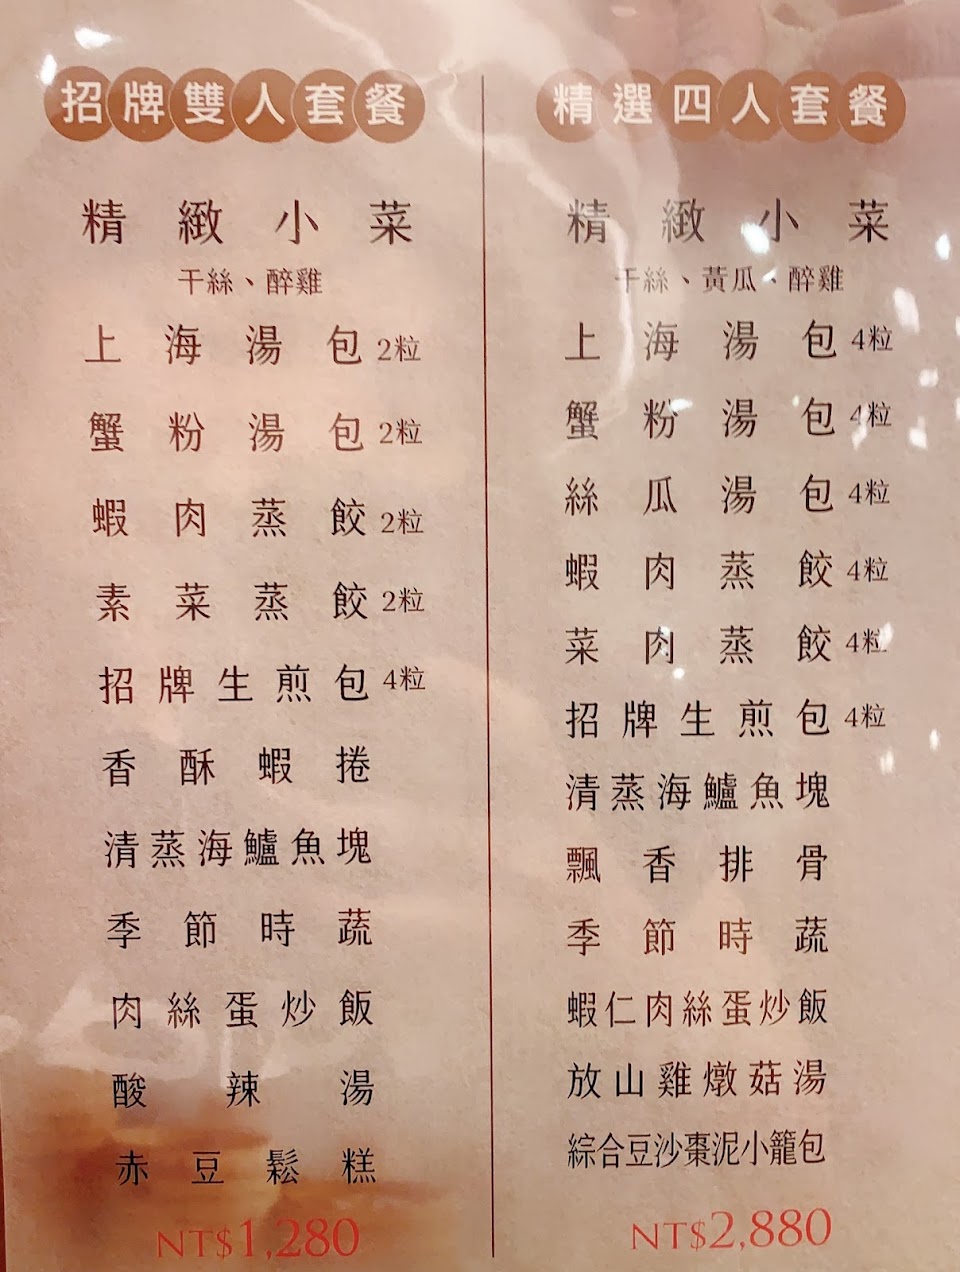 招牌雙人套餐
精緻小菜
干絲、醉雞
上海湯包2粒
蟹粉湯包2粒
蝦肉蒸餃2粒
素菜蒸餃2粒
招牌生煎包4粒
香酥蝦捲
清蒸海鱸魚塊
季節時蔬
肉絲蛋炒飯
酸辣湯
赤豆鬆糕
NT$1,280
精選四人套餐
精緻小菜
干絲、黃瓜、醉雞
上海湯包4粒
蟹粉湯包4粒
絲瓜湯包4粒
蝦肉蒸餃4粒
菜肉蒸餃4粒
招牌生煎包4粒
清蒸海鱸魚塊
飄香排骨
季節時蔬
蝦仁肉絲蛋炒飯
放山雞燉菇湯
綜合豆沙棗泥小籠包
NT$2,880